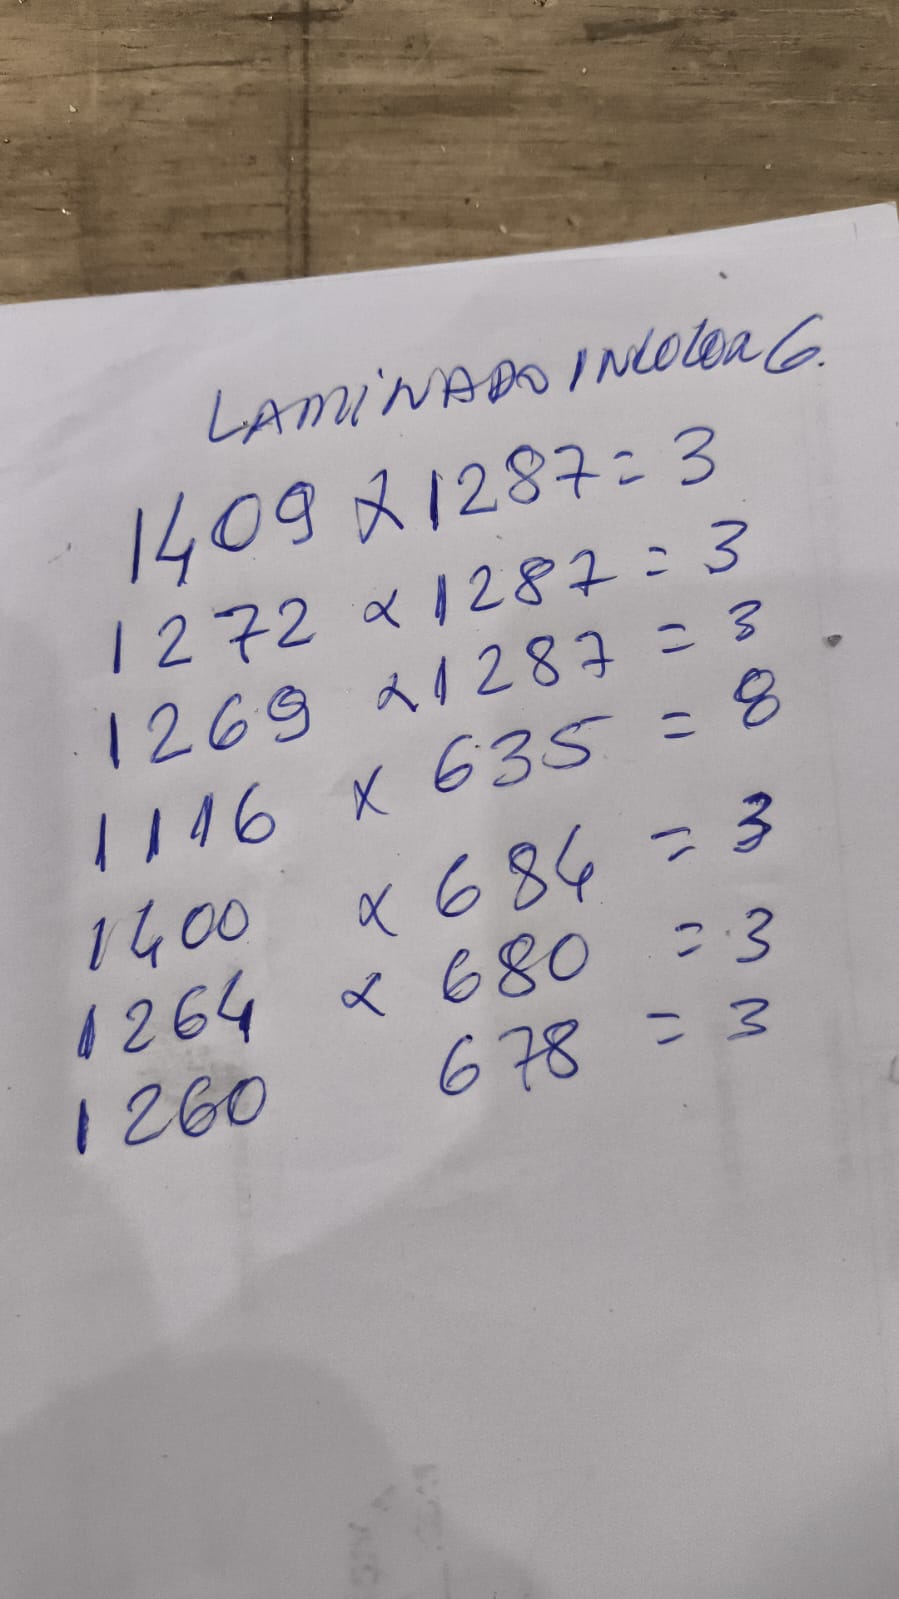 LAMINADO INCOLOR 6.
1409 x 1287 = 3
1272 x 1287 = 3
1269 x 1287 = 3
1116 x 635 = 8
1400 x 684 = 3
1264 x 680 = 3
1260 678 = 3